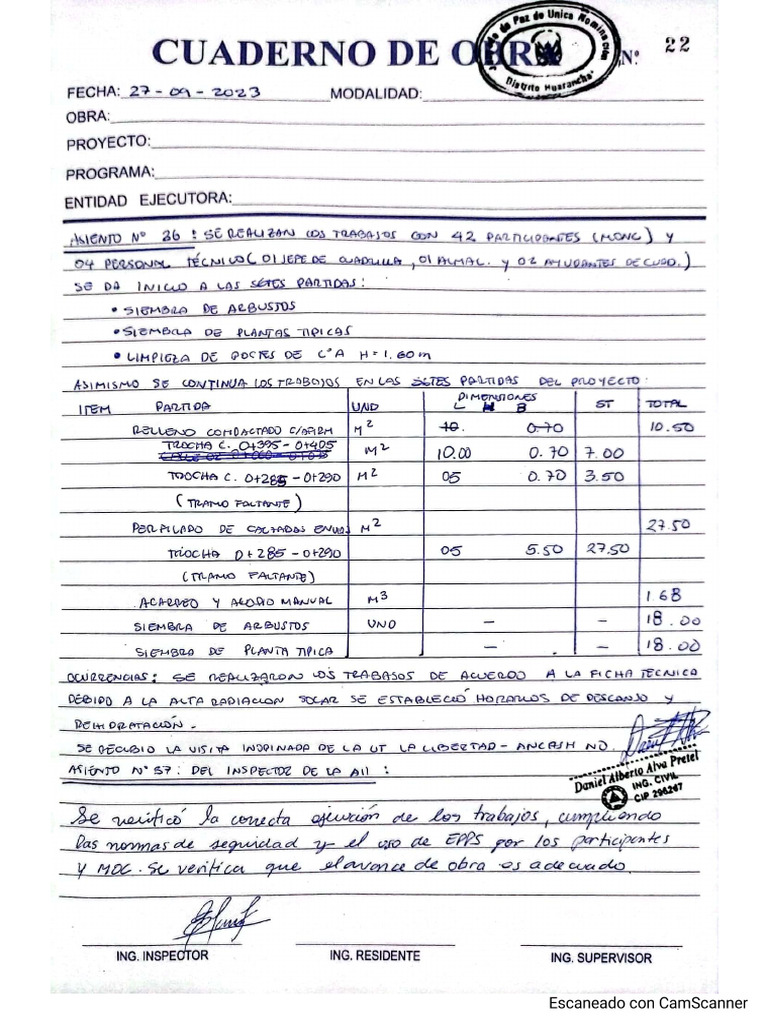 Juzgado de Paz de Unica Nominación
Distrito Huaranchal
CUADERNO DE OBRA Nº 22
FECHA: 27-09-2023 MODALIDAD:
OBRA:
PROYECTO:
PROGRAMA:
ENTIDAD EJECUTORA:
ASIENTO Nº 36: SE REALIZAN LOS TRABAJOS CON 42 PARTICIPANTES (MONC) Y
04 PERSONAL TÉCNICO (01 JEFE DE CUADRILLA, 01 ALMAC. Y 02 AYUDANTES DE CUAD.)
SE DA INICIO A LAS SGTES PARTIDAS:
• SIEMBRA DE ARBUSTOS
• SIEMBRA DE PLANTAS TIPICAS
• LIMPIEZA DE POSTES DE CºA H=1.60m
ASIMISMO SE CONTINUA LOS TRABAJOS EN LAS SGTES PARTIDAS DEL PROYECTO:
DIMENSIONES
ITEM PARTIDA UND L H B ST TOTAL
RELLENO COMPACTADO C/AFIRM M² 10. 0.70 10.50
TROCHA C. 0+395-0+405 M² 10.00 0.70 7.00
TROCHA C. 0+285-0+290 M² 05 0.70 3.50
(TRAMO FALTANTE)
PERFILADO DE CALZADAS M² 27.50
TROCHA 0+285-0+290 05 5.50 27.50
(TRAMO FALTANTE)
ACARREO Y ACOPIO MANUAL M3 1.68
SIEMBRA DE ARBUSTOS UND - - 18.00
SIEMBRA DE PLANTA TIPICA - - 18.00
OCURRENCIAS: SE REALIZARON LOS TRABAJOS DE ACUERDO A LA FICHA TECNICA
DEBIDO A LA ALTA RADIACION SOLAR SE ESTABLECIÓ HORARIOS DE DESCANSO Y
REHIDRATACIÓN.
SE RECIBIO LA VISITA INOPINADA DE LA UT LA LIBERTAD-ANCASH NO.
ASIENTO Nº 37: DEL INSPECTOR DE LA AII:
Daniel Alberto Alva Pretel
ING. CIVIL
CIP 296267
Se verificó la correcta ejecución de los trabajos, cumpliendo
las normas de seguridad y el uso de EPPS por los participantes
y MOC. Se verifica que el avance de obra es adecuado.
ING. INSPECTOR ING. RESIDENTE ING. SUPERVISOR
Escaneado con CamScanner